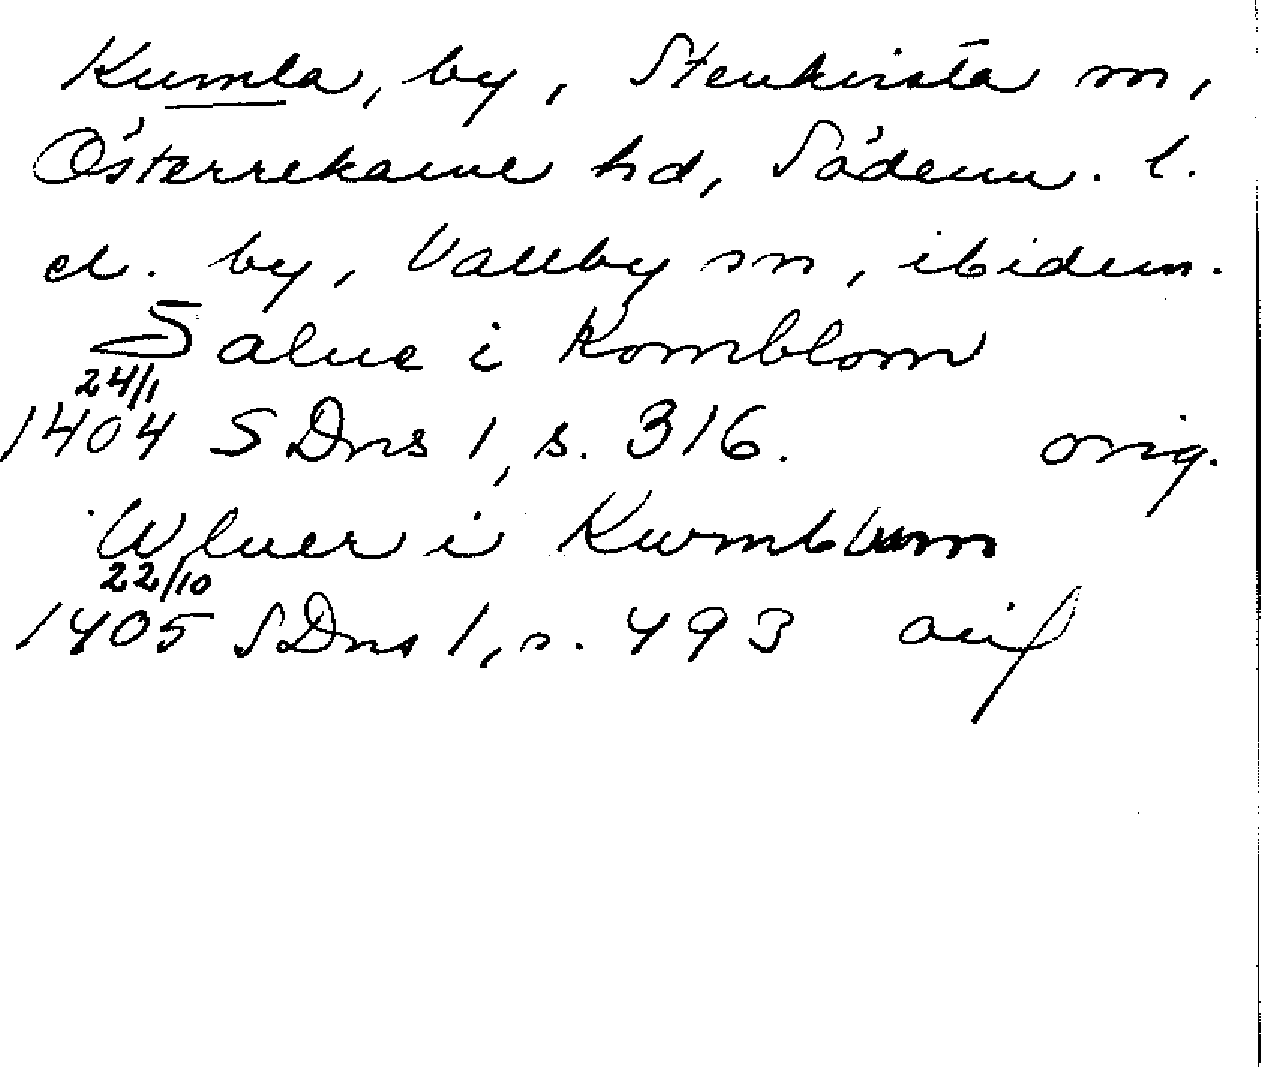 Kumla, by, Stenkvista sn,
Österrekarne hd, Söderm. l.
el. by, Vallby sn, ibidem.
Salue i Komblom
24/1
1404 SDns 1, s. 316. orig.
Wluer i Kwmblum
22/10
1405 SDns 1, s. 493